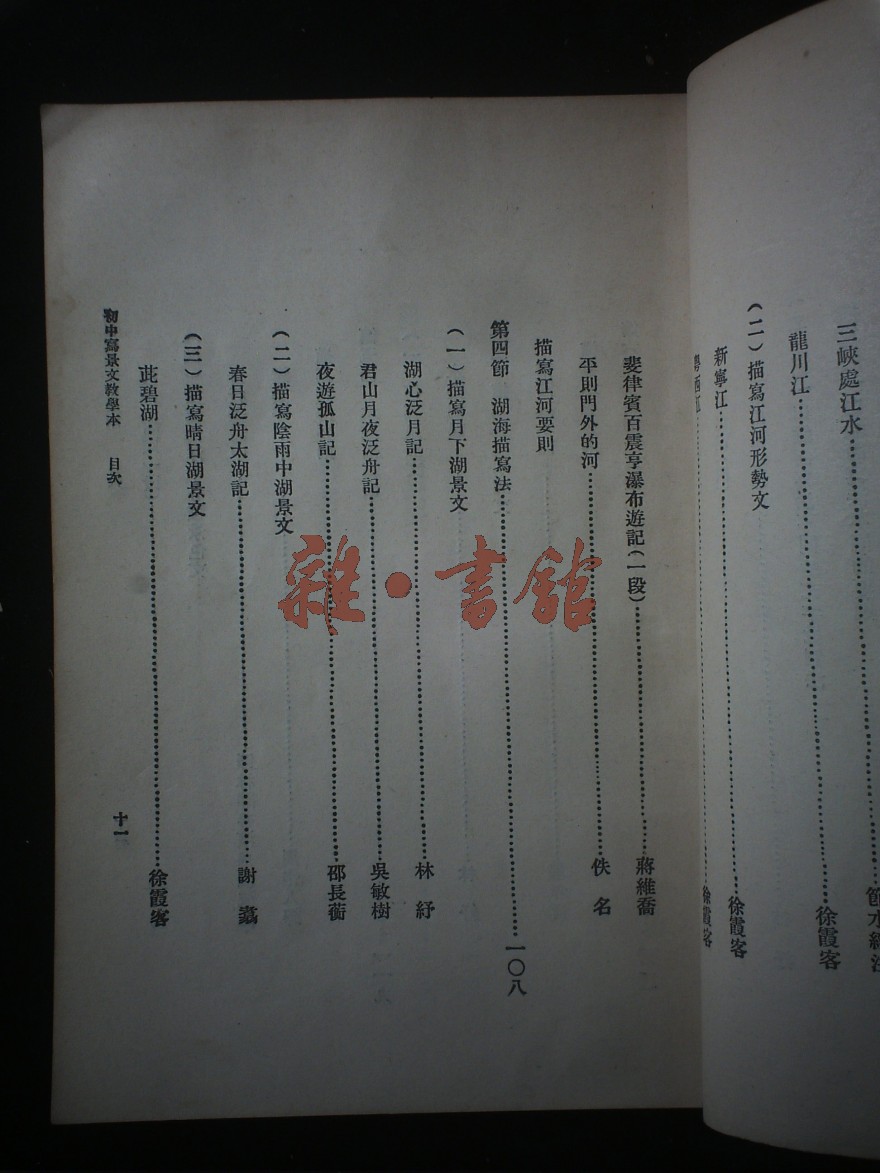 三峽處江水……節水經注
龍川江……徐霞客
(二)描寫江河形勢文
新寧江……徐霞客
粵西江……徐霞客
斐律賓百震亨瀑布遊記(一段)……蔣維喬
平則門外的河……佚名
描寫江河要則
第四節 湖海描寫法……一〇八
(一)描寫月下湖景文
湖心泛月記……林紓
君山月夜泛舟記……吳敏樹
夜遊孤山記……邵長蘅
(二)描寫陰雨中湖景文
春日泛舟太湖記……謝
(三)描寫晴日湖景文
茈碧湖……徐霞客
初中寫景文教學本 目次 十一
雜·書館